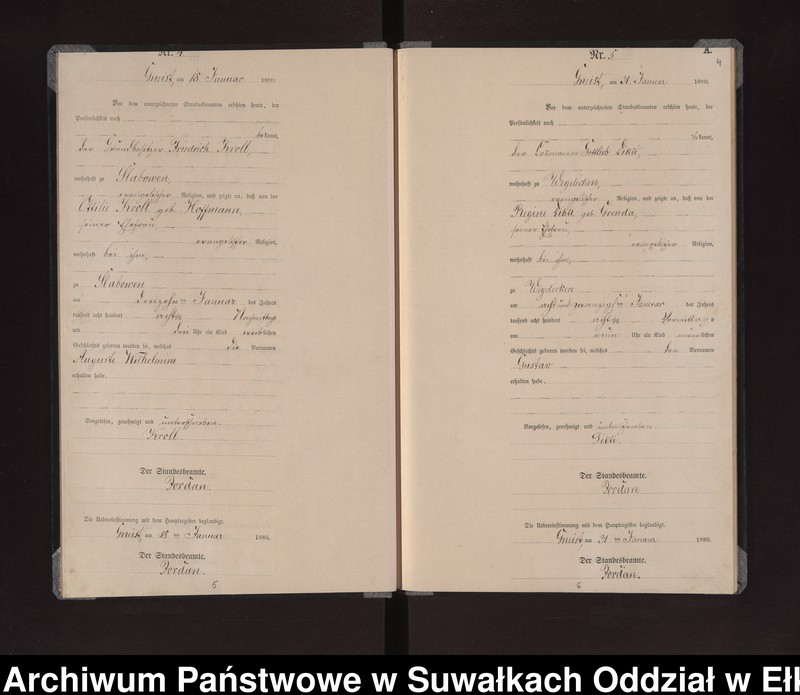 Nr. 4
Gneist, am 15 Januar 1880.
Vor dem unterzeichneten Standesbeamten erschien heute, der
Persönlichkeit nach
bekannt,
der Grundbesitzer Friedrich Kroll,
wohnhaft zu Slabowen,
evangelischer Religion, und zeigte an, daß von der
Ottilie Kroll geb. Hoffmann,
seiner Ehefrau,
evangelischer Religion,
wohnhaft bei ihm,
zu Slabowen
am dreizehn ten Januar des Jahres
tausend acht hundert achtzig Nachmittags
um drei Uhr ein Kind weiblichen
Geschlechts geboren worden sei, welches die Vornamen
Auguste Wilhelmine
erhalten habe.
Vorgelesen, genehmigt und unterschrieben.
Kroll.
Der Standesbeamte.
Jordan.
Die Uebereinstimmung mit dem Hauptregister beglaubigt.
Gneist, am 15 ten Januar 1880.
Der Standesbeamte.
Jordan.
5
A.
Nr. 5
4
Gneist, am 31 Januar 1880.
Vor dem unterzeichneten Standesbeamten erschien heute, der
Persönlichkeit nach
bekannt,
der Losmann Gottlieb
wohnhaft zu
evangelischer Religion, und zeigte an, daß von der
Regine geb. Gronda,
seiner Ehefrau,
evangelischer Religion,
wohnhaft bei ihm,
zu
am acht und zwanzigsten Januar des Jahres
tausend acht hundert achtzig Vormittags
um neun Uhr ein Kind männlichen
Geschlechts geboren worden sei, welches den Vornamen
Gustav
erhalten habe.
Vorgelesen, genehmigt und unterschrieben.
Der Standesbeamte.
Jordan.
Die Uebereinstimmung mit dem Hauptregister beglaubigt.
Gneist, am 31 ten Januar 1880.
Der Standesbeamte.
Jordan.
6
Archiwum Państwowe w Suwałkach Oddział w Eł